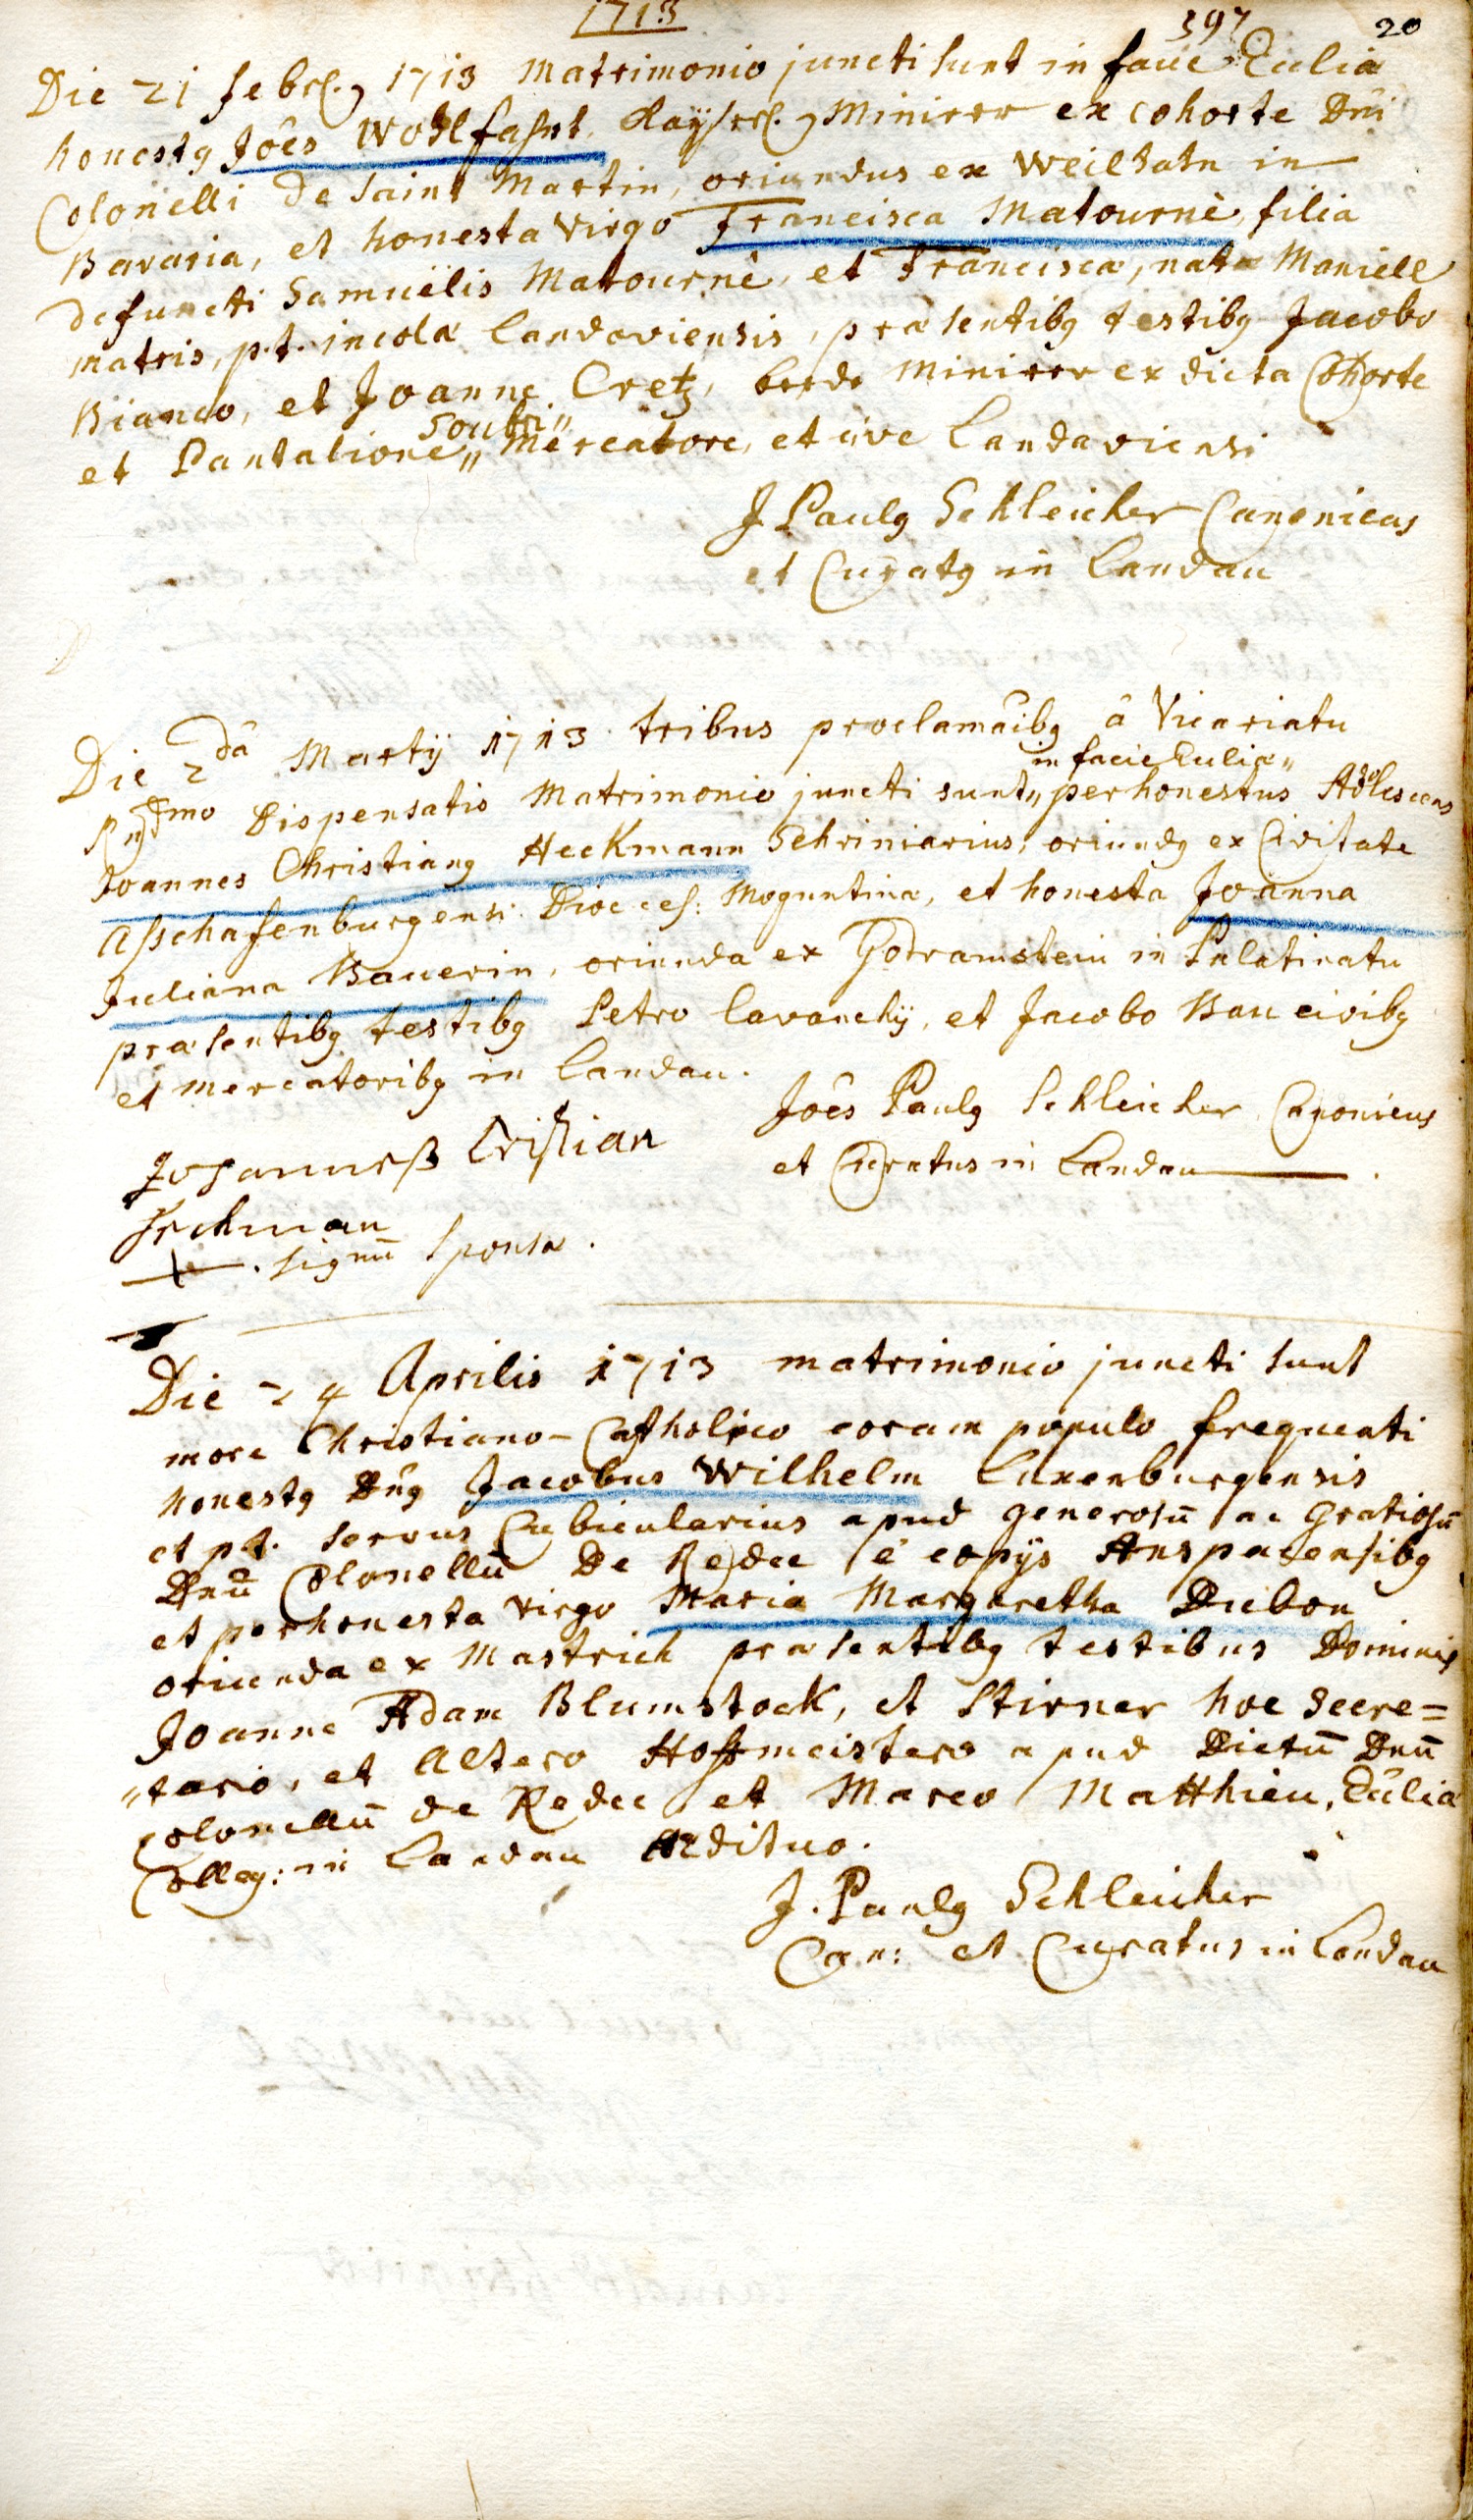 1713
397
20
Die 21 febr. 1713 Matrimonio juncti sunt in facie Ecclia
honestg Joês Wohlfahrt Kaÿserl. Minierer ex cohorte Dni
Colonelli De Saint Martin, oriundus ex Weilhatn in
Bavaria, et honesta Virgo Francisca Matournè, filia
defuncti Samuëlis Matournè, et Franciscæ, natæ Mariell
matris, p.t. incolæ Landaviensis, præsentibg testibg Jacobo
Bianco, et Joanne Cretz, beede Minierer ex dicta Cohorte
et Pantalione „ Soubri „ Mercatore, et cive Landaviensi
J Paulg Schleicher Canonicus
et Curatg in Landau
Die 2dâ Martÿ 1713 tribus proclamâibg â Vicariatu
Rndmo Dispensatis Matrimonio juncti sunt „ in facie Eccliæ „ perhonestus Adolescens
Joannes Christiang Heckmann Schriniarius, oriundg ex Civitate
Asschafenburgensi Dioeces: Moguntinæ, et honesta Joanna
Juliana Bauerin, oriunda ex Godramstein in Palatinatu
præsentibg testibg Petro Lavanchÿ, et Jacobo Bau civibg
et mercatoribg in Landau.
Joês Paulg Schleicher Canonicus
et Curatus in Landau
Johanneß Cristian
Hechman
+ . Signū Sponsæ.
Die 24 Aprilis 1713 matrimonio juncti sunt
more Christiano-Catholico coram populo frequenti
honestg Dng Jacobus Wilhelm Luxenburgensis
et p.t. servus Cubicularius apud generosū ac Gratiosū
Dnū Colonellū De Redee è copÿs Anspacensibg
et perhonesta virgo Maria Margaretha Diebon
oriunda ex Mastrich præsentibg testibus Dominis
Joanne Adam Blumstock, et Stirner hoc Secre=
„tario, et altero Hoffmeistero apud Dictū Dnū
Colonellū de Redee et Marco Matthieu, Ecclia
Colleg: in Landau Ædituo.
J. Paulg Schleicher
Can: et Curatus in Landau